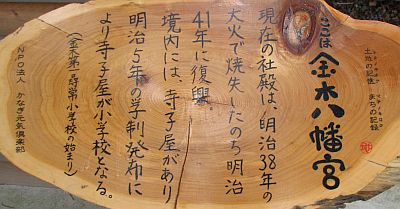 ここは
金木八幡宮
土地の記憶 まちの記録
現在の社殿は、明治38年の
大火で焼失したのち明治
41年に復興
境内には、寺子屋があり
明治5年の学制発布に
より寺子屋が小学校となる。
(金木第一尋常小学校の始まり)
NPO法人 かなぎ元気倶楽部